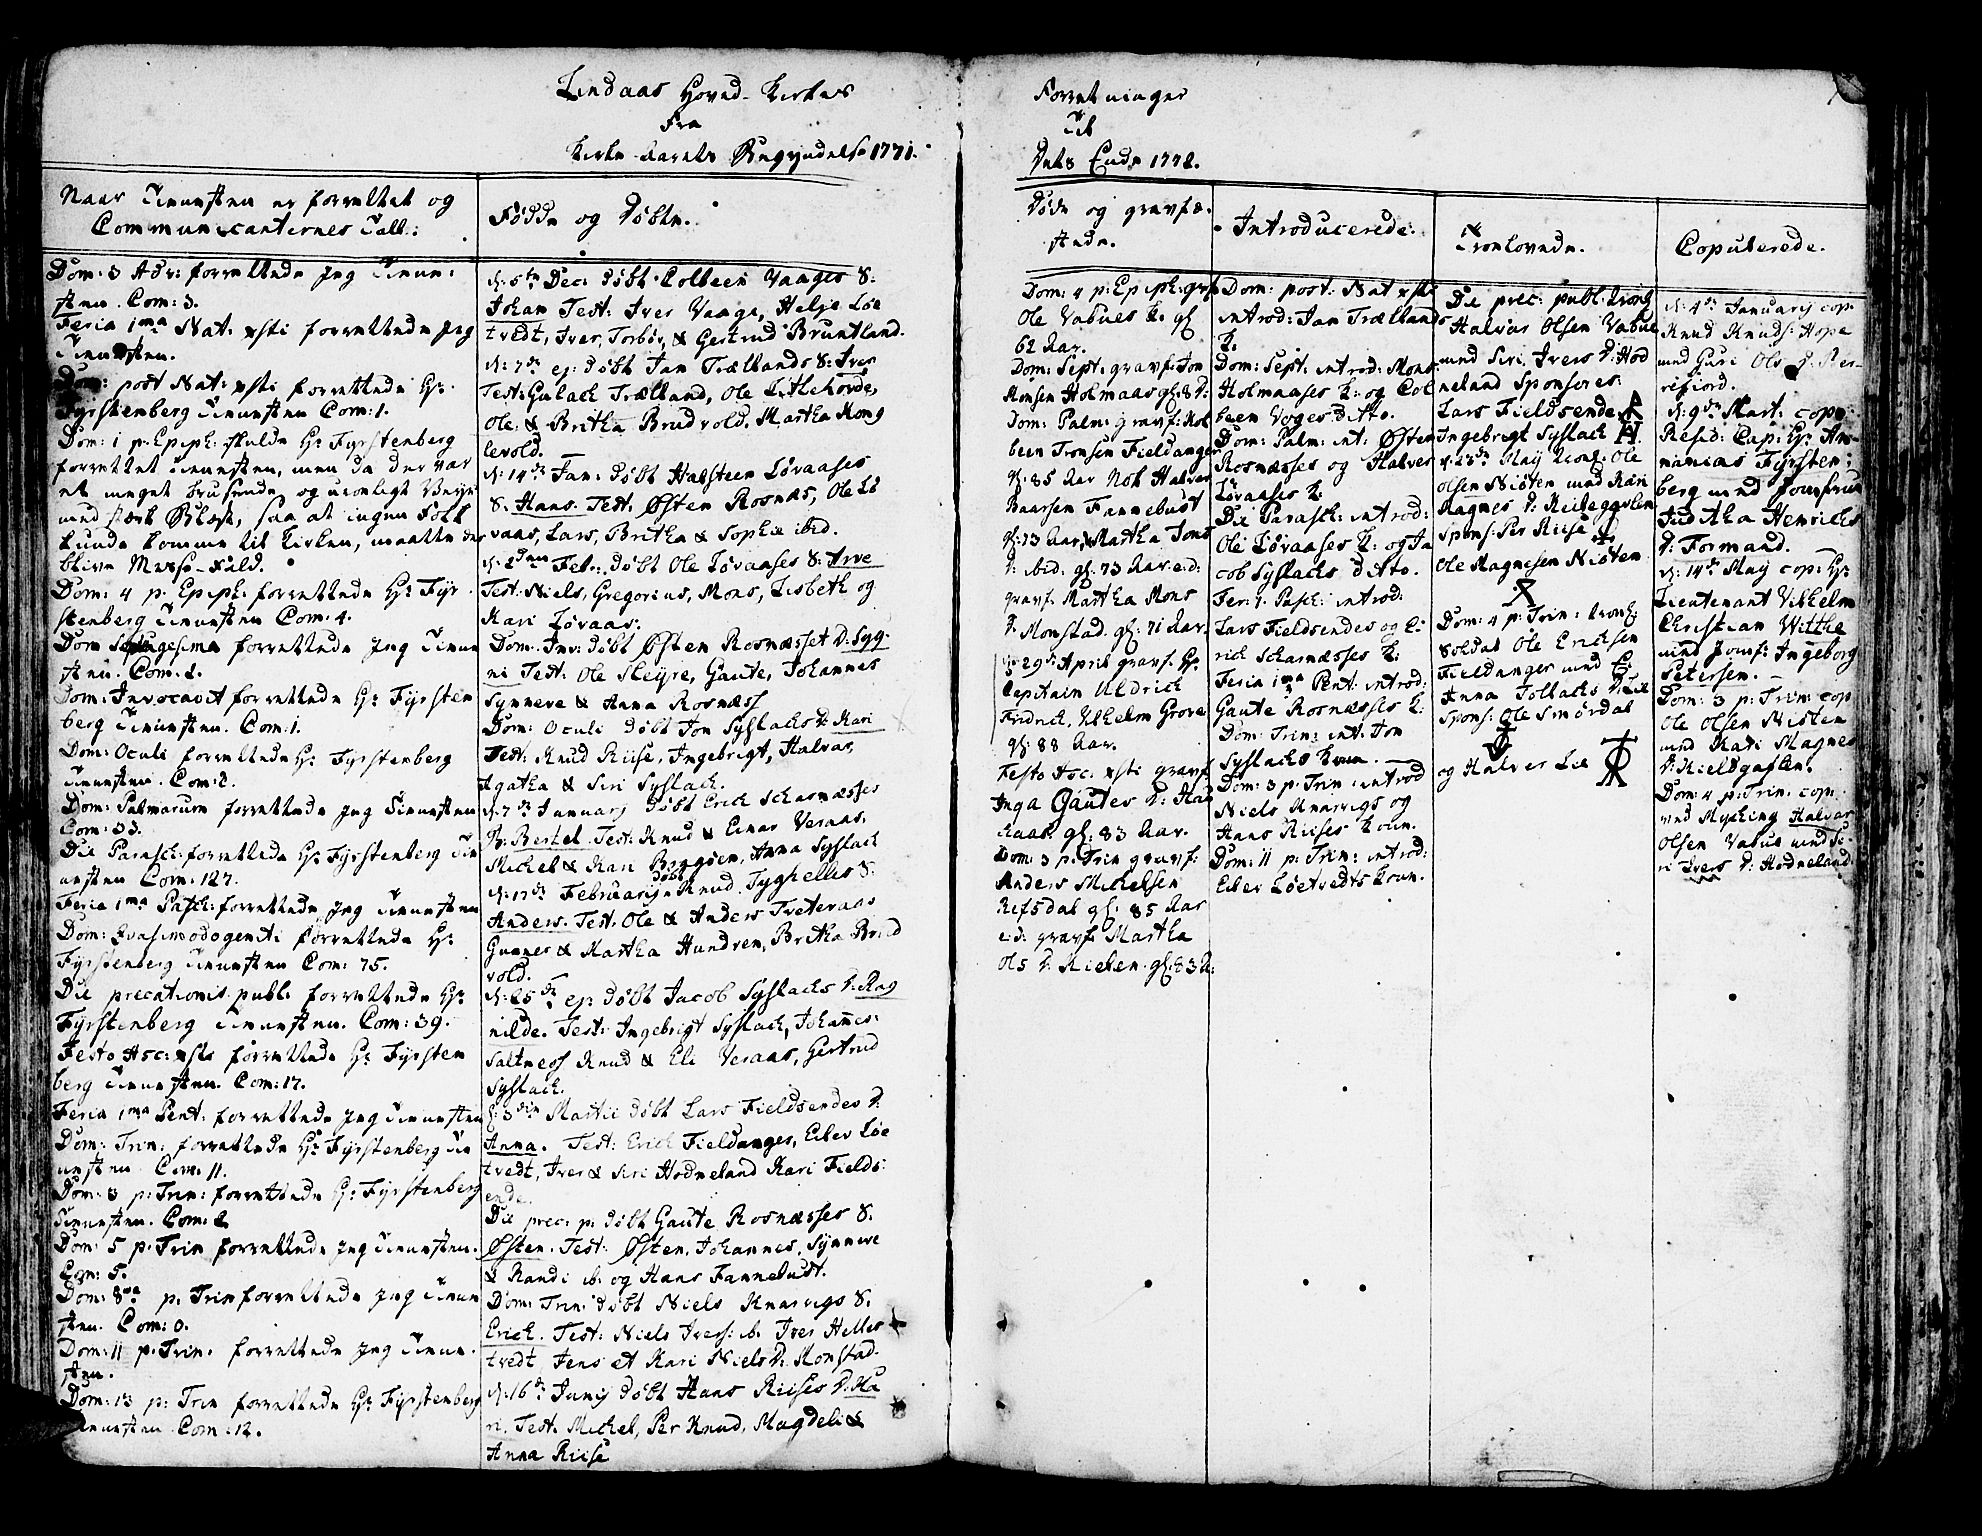 Lindaas Hoved-Kirkes
Fra
Kirke-Aarets Begyndelse 1771.
Naar Tienesten er forrettet og
Communicanternes Tall:
Fødde og Døbte.
Dom: 3 Adv: forrettede jeg Tiene:
sten. Com: 3.
Feria 1ma Nat: xsti forrettede jeg
Tienesten.
Dom: post Nat: xsti forrettede Hr:
Fyrstenberg Tienesten Com: 1.
Dom: 1 p: Epiph: skulde Hr Fyrstenberg
forrettet Tienesten, men da der var
et meget brusende og uroligt Veyr
med stærk Blæst, saa at ingen Folk
kunde komme til Kirken, maatte der
blive Messe-Fald.
Dom: 4 p: Epiph: forrettede Hr Fyr
stenberg Tienesten Com: 4.
Dom Septuagesima forrettede jeg Tiene
sten. Com: 2.
Dom: Invocavit forrettede Hr: Fyrsten
berg Tienesten. Com: 1.
Dom: Oculi forrettede Hr: Fyrstenberg
Tienesten. Com: 2.
Dom: Palmarum forrettede jeg Tienesten
Com: 33.
Die Parasch: forrettede Hr Fyrstenberg Tie
nesten Com: 127.
Feria 1ma Pasch: forrettede jeg Tienesten
Dom: Quasimodogeniti forrettede Hr
Fyrstenberg Tienesten Com: 75.
Die precationis publ: forrettede Hr
Fyrstenberg Tienesten. Com: 39.
Festo Asc: xsti forrettede Hr Fyrsten
berg Tienesten. Com: 17.
Feria 1ma Pent: forrettede jeg Tienesten
Dom: Trin: forrettede Hr Fyrstenberg Tie
nesten Com: 11.
Dom: 3 p: Trin: forrettede Hr: Fyrstenberg
Tienesten. Com: 2
Dom: 5 p: Trin forrettede jeg Tienesten.
Com: 5.
Dom: 8va p: Trin forrettede jeg Tiene
sten. Com: 0.
Dom: 11 p: Trin: forrettede jeg Tiene
sten.
Dom: 13 p: Trin forrettede Hr Fyrstenberg
Tienesten Com: 12.
d: 6te Dec: døbt Colbeen Vaages S:
Johan Test: Iver Vaage, Helje Løe
tvedt, Iver, Torbør, & Gertrud Bruntland.
d: 7de ej: døbt Jan Trællands S: Iver
Test: Gulack Trælland, Ole Litlehorde,
Ole & Britha Brudvold. Martha Mong
levold.
d: 14de Jan: døbt Halsteen Løvaases
S. Hans. Test. Østen Rosnæs, Ole Lø
vaas, Lars, Britha & Sophie ibid.
d: 2den Feb: døbt Ole Løvaases S: Arve
Test. Niels, Gregorius, Mons, Lisbeth og
Kari Løvaas:
Dom: Inv: døbt Østen Rosnæsset D: Syg
ni Test: Ole Skeyre, Gaute, Johannes
Synneve & Anna Rosnæss
Dom: Oculi døbt Jon Syslacks D: Kari
Test: Knud Riise, Ingebrigt, Halvas,
Agatha & Siri Syslack.
d: 7de Januarij døbt Erich Scharnæsses
D: Bertel. Test: Knud & Einar Veraas,
Michel & Kari Børgøen, Anna Syslack
d: 17de Februarij døbt Knud. Tyghelles S:
Anders. Test: Ole & Anders Tveteraas
Gunner & Martha Hundven, Britha Brud
vold.
d: 25de ej: døbt Jacob Syslacks D: Rag
nilde. Test: Ingebrigt Syslack, Johañes:
Saltness Knud & Eli Veraas, Gertrud
Syslack.
d: 3die Martii døbt Lars Fieldsendes D:
Anna. Test: Erich Fieldanger, Eiler Løe
tvedt, Iver & Siri Hodneland Kari Fields:
ende.
Die prec: p: døbt Gaute Rosnæsses S.
Østen. Test: Østen, Johannes, Synneve
& Randi ib: og Hans Fannebust.
Dom: Trin: døbt Niels Knarvigs S.
Erich. Test: Niels Ivers: ib. Iver Helles
tvedt, Jens et Kari Niels D: Monstad.
d: 16de Junij døbt Hans Riises D: Ka
ri. Test: Michel, Per Knud, Magdeli &
Anna Riise
Forretninger
Til
Dets Ende 1772.
Døde og gravfæ-
stede.
Introducerede.
Trolovede.
Copulerede.
Dom: 4 p: Epiph: grf
Ole Vabøes K. gl
62 Aar.
Dom: Sept: gravf: Jon
Monsen Holmaas gl: 8 D:
Dom: Palm: gravf: Kol
been Tronsen Fieldanger
gl: 85 Aar Nok Halver
Baarsen Fannebust
gl: 73 Aar, & Martha Jons
D: ibid: gl: 73 Aar. e.d:
gravf. Martha Mons
D: Monstad. gl: 71 Aar.
d: 29de April gravf. Hr
Capitain Uldrich
Fridrich, Vilhelm Grove
gl: 88 Aar.
Festo Asc: xsti gravf.
Inga Gautes D: Had
haas. gl: 83 Aar.
Dom: 3 p: Trin gravf:
Anders Michelsen
Refsdal gl: 85 Aar
e.d: gravf. Martha
Ols D: Rieken. gl: 83 A:
Dom: post: Nat xsti
introd: Jan Trællands
K.
Dom: Sept: introd: Mons
Holmaases K: og Col
been Voges ditto.
Dom: Palm: int: Østen
Rosnæsses og Halver
Løvaases K:
Die Parasch: introd:
Ole Løvaases K: og Ja
cob Syslacks ditto.
Fer: 1. Pasch: introd:
Lars Fieldsendes og E:
rich Scharnæsses K:
Feria 1ma Pent: introd:
Gaute Rosnæsses K:
Dom: Trin: int: Jon
Syslacks Kone.
Dom: 3 p: Trin introd
Niels Knarvigs og
Hans Riises Kone.
Dom: 11 p: Trin: introd:
Eiler Løetvedts Kone.
Die prec: publ: trol:
Halvas Olsen Vabøe
med Siri Ivers D: Hod
neland Sponsores:
Lars Fieldsende
Ingebrigt Syslack
d: 23de Maij trol: Ole
Olsen Niøten med Kari
Magnes D: Kielegavlen
Spons: Per Riise
Ole Magnesen Niøten
Dom: 4 p: Trin: trol:
Soldat Ole Erichsen
Fieldanger med E:
Anna Tollacks D: Lie
Spons: Ole Smørdal
og Halver Lie
d: 4de Januarij cop:
Knud Knuds: Hope
med Guri Ols D. Ker-
refiord.
d: 9de Mart: cop:
Resid: Cap: Hr An-
manias Fyrsten:
berg med Jomfrue
Juditha Henrichs
D: Formand.
d: 14de Maij cop: Hr
Lieutenant Vilhelm
Christian Withe
med Jomf: Ingeborg
Petersen.
Dom: 3 p: Trin: cop
Ole Olsen Niøten
med Kari Magnes
D: Kielegaflen.
Dom: 4 p: Trin: cop:
ved Myhing Halvas
Olsen Vabøe med Si-
ri Ivers D: Hodneland